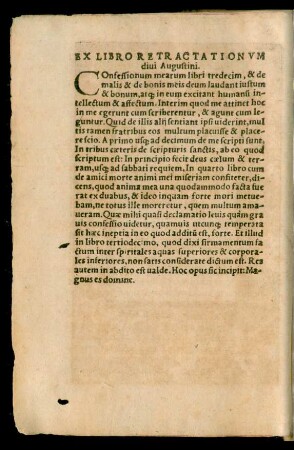 EX LIBRO RETRACTATIONVM
diui Augustini.
COnfessionum mearum libri tredecim, & de
malis & de bonis meis deum laudant iustum
& bonum, atq; in eum excitant humanũ in
tellectum & affectum. Interim quod me attinet hoc
in me egerunt cum scriberentur, & agunt cum le
guntur. Quid de illis alii sentiant ipsi uiderint, mul
tis tamen fratribus eos multum placuisse & place
re scio. A primo usq; ad decimum de me scripti sunt.
In tribus cæteris de scripturis sanctis, ab eo quod
scriptum est: In principio fecit deus cælum & ter
ram, usq; ad sabbati requiem. In quarto libro cum
de amici morte animi mei miseriam confiteter, di
cens, quod anima mea una quodammodo facta fue
rat ex duabus, & ideo inquam forte mori metue/
bam, ne totus ille moreretur, quem multum ama/
ueram. Quæ mihi quasi declamatio leuis quàm gra
uis confessio uidetur, quamuis utcunq; temperata
sit hæc ineptia in eo quod additũ est, forte. Et illud
in libro tertiodecimo, quod dixi firmamentum fa
ctum inter spiritales aquas superiores & corpora/
les inferiores, non satis considerate dictum est. Res
autem in abdito est ualde. Hoc opus sic incipit: Ma
gnus es domine.